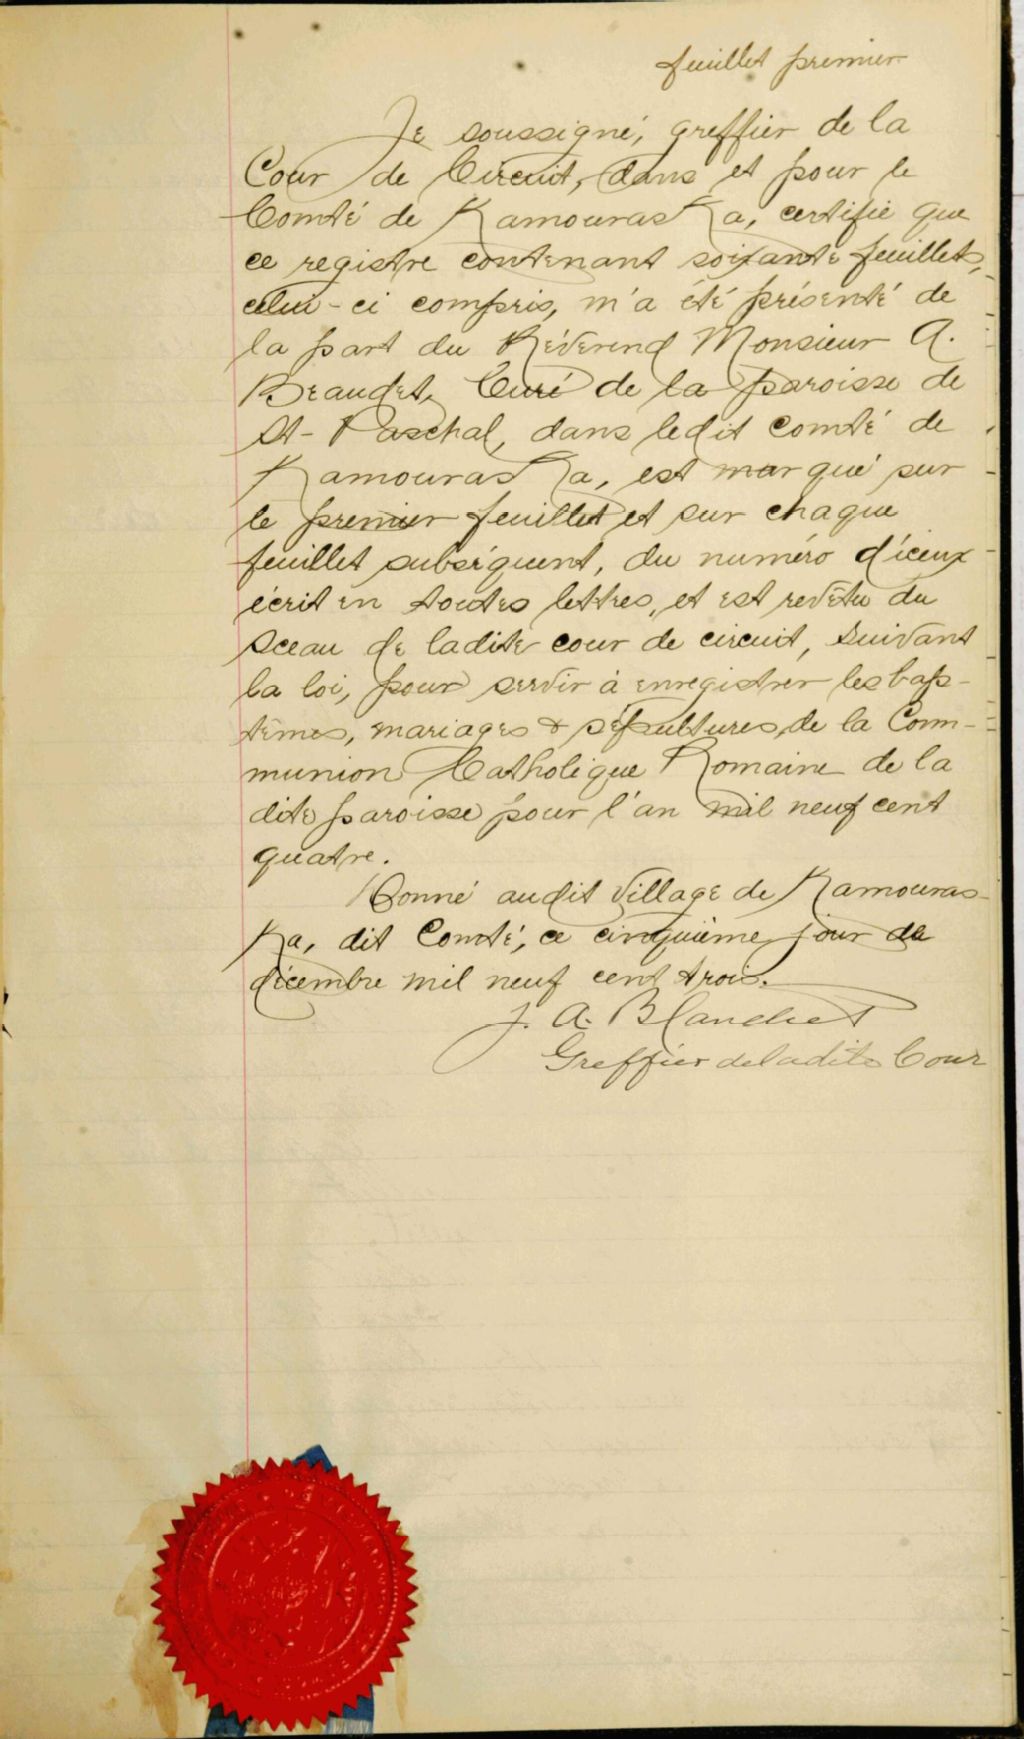 feuillet premier
Je soussigné, greffier de la
Cour de Circuit, dans et pour le
Comté de Kamouraska, certifie que
ce registre contenant soixante feuillets,
celui-ci compris, m'a été présenté de
la part du Révérend Monsieur A.
Beaudet, Curé de la paroisse de
St-Paschal, dans ledit Comté de
Kamouraska, est marqué sur
le premier feuillet et sur chaque
feuillet subséquent, du numéro d'iceux
écrit en toutes lettres, et est revêtu du
Sceau de ladite cour de circuit, Suivant
la loi, pour servir à enregistrer les bap-
têmes, mariages & sépultures, de la Com-
munion Catholique Romaine de la
dite paroisse pour l'an mil neuf cent
quatre.
Donné audit Village de Kamouras-
Ka, dit Comté, ce cinquième jour de
décembre mil neuf cent trois.
J. A. Blanchet
Greffier de ladite Cour